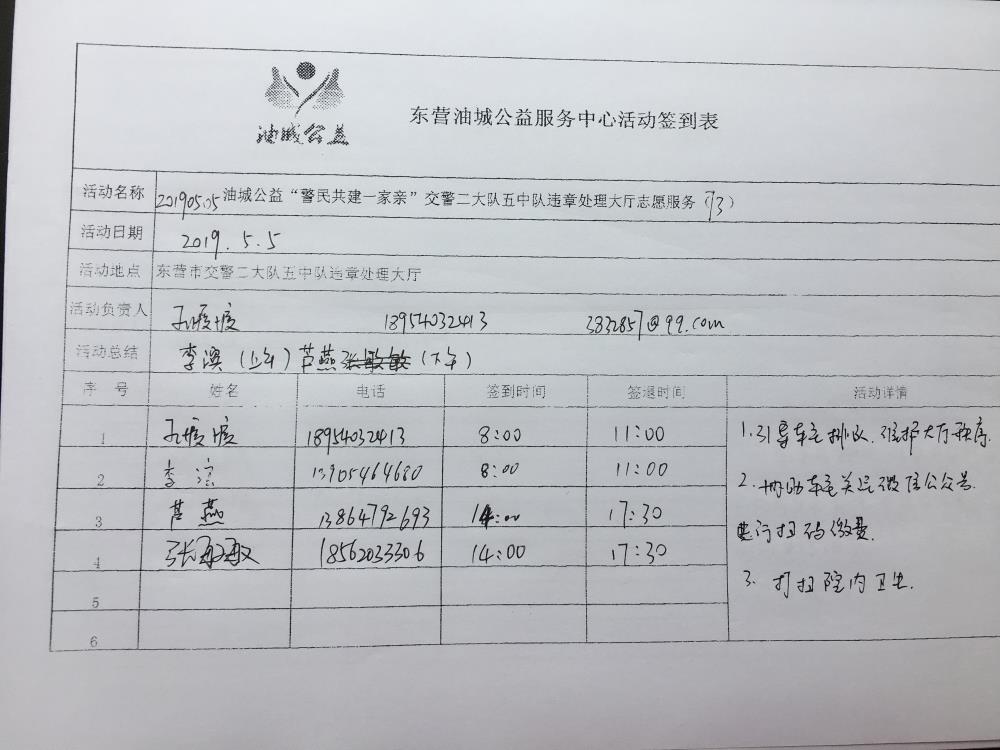 油城公益
东营油城公益服务中心活动签到表
活动名称 20190505油城公益“警民共建一家亲”交警二大队五中队违章处理大厅志愿服务（93）
活动日期 2019.5.5
活动地点 东营市交警二大队五中队违章处理大厅
活动负责人 18954032413 3832857@qq.com
活动总结 李滨（上午）芦燕张敏敏（下午）
序号 姓名 电话 签到时间 签退时间 活动详情
1 18954032413 8:00 11:00 1.引导车主排队.维护大厅秩序.
2 李滨 13905464680 8:00 11:00 2.协助车主关注微信公众号.
3 芦燕 13864792693 14:00 17:30 进行扫码缴费.
4 张敏敏 18562033306 14:00 17:30 3.打扫院内卫生.
5
6